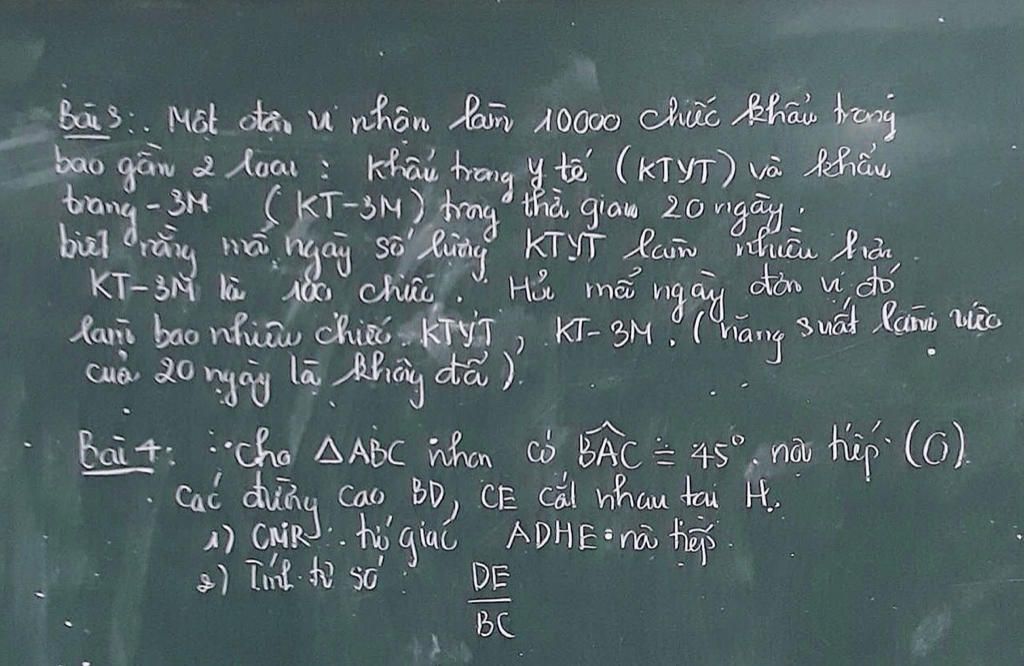 Bài 3: Một đơn vị nhận làm 10000 chiếc khẩu trang
bao gồm 2 loại : khẩu trang y tế (KTYT) và khẩu
trang - 3M ( KT-3M ) trong thời gian 20 ngày.
biết rằng mỗi ngày số lượng KTYT làm nhiều hơn
KT-3M là 100 chiếc. Hỏi mỗi ngày đơn vị đó
làm bao nhiêu chiếc KTYT, KT-3M. (năng suất làm việc
của 20 ngày là không đổi).
Bài 4: Cho △ABC nhọn có \widehat{BAC} = 45° nội tiếp (O)
Các đường cao BD, CE cắt nhau tại H.
1) CMR : tứ giác ADHE nội tiếp.
2) Tính tỉ số DE/BC